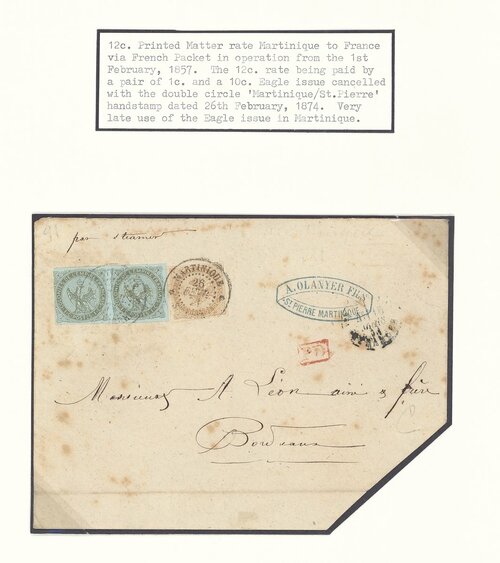 12c. Printed Matter rate Martinique to France
via French Packet in operation from the 1st
February, 1857. The 12c. rate being paid by
a pair of 1c. and a 10c. Eagle issue cancelled
with the double circle 'Martinique/St.Pierre'
handstamp dated 26th February, 1874. Very
late use of the Eagle issue in Martinique.
par steamer
MARTINIQUE
26
A. OLANYER FILS
ST PIERRE MARTINIQUE
Messieurs A Léon ainé & frère
Bordeaux